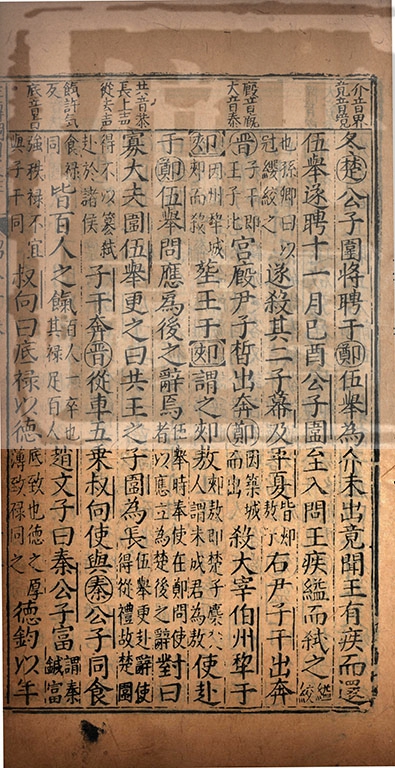 介音界
竟音境
廄音救
大音泰
共音恭
長上声
從去声
餼許氣
反
底音旨
冬楚公子圍將聘于鄭伍舉為介未出竟聞王有疾而還
伍舉遂聘十一月己酉公子圍至入問王疾縊而弒之縊絞
也孫卿曰以冠纓絞之遂殺其二子幕及平夏皆郟敖子右尹子干出奔
晉子干即王子比宮廄尹子晳出奔鄭因築城而出殺大宰伯州犁于
郟因州犁城郟而殺塟王于郟謂之郟敖郟敖即楚子麇楚人謂未成君為敖使赴
于鄭伍舉問應為後之辭焉伍舉時奉使在鄭問使者以應立為楚後之辭對曰
寡大夫圍伍舉更之曰共王之子圍為長伍舉更赴辭使得從禮故楚圍
得不以篡弒赴於諸侯子干奔晉從車五乘叔向使與秦公子同食
食祿同皆百人之餼百人一卒也其祿足百人趙文子曰秦公子富謂秦鍼富
強秩祿不宜與子干同叔向曰底祿以德底致也德之厚薄致祿同之德鈞以年